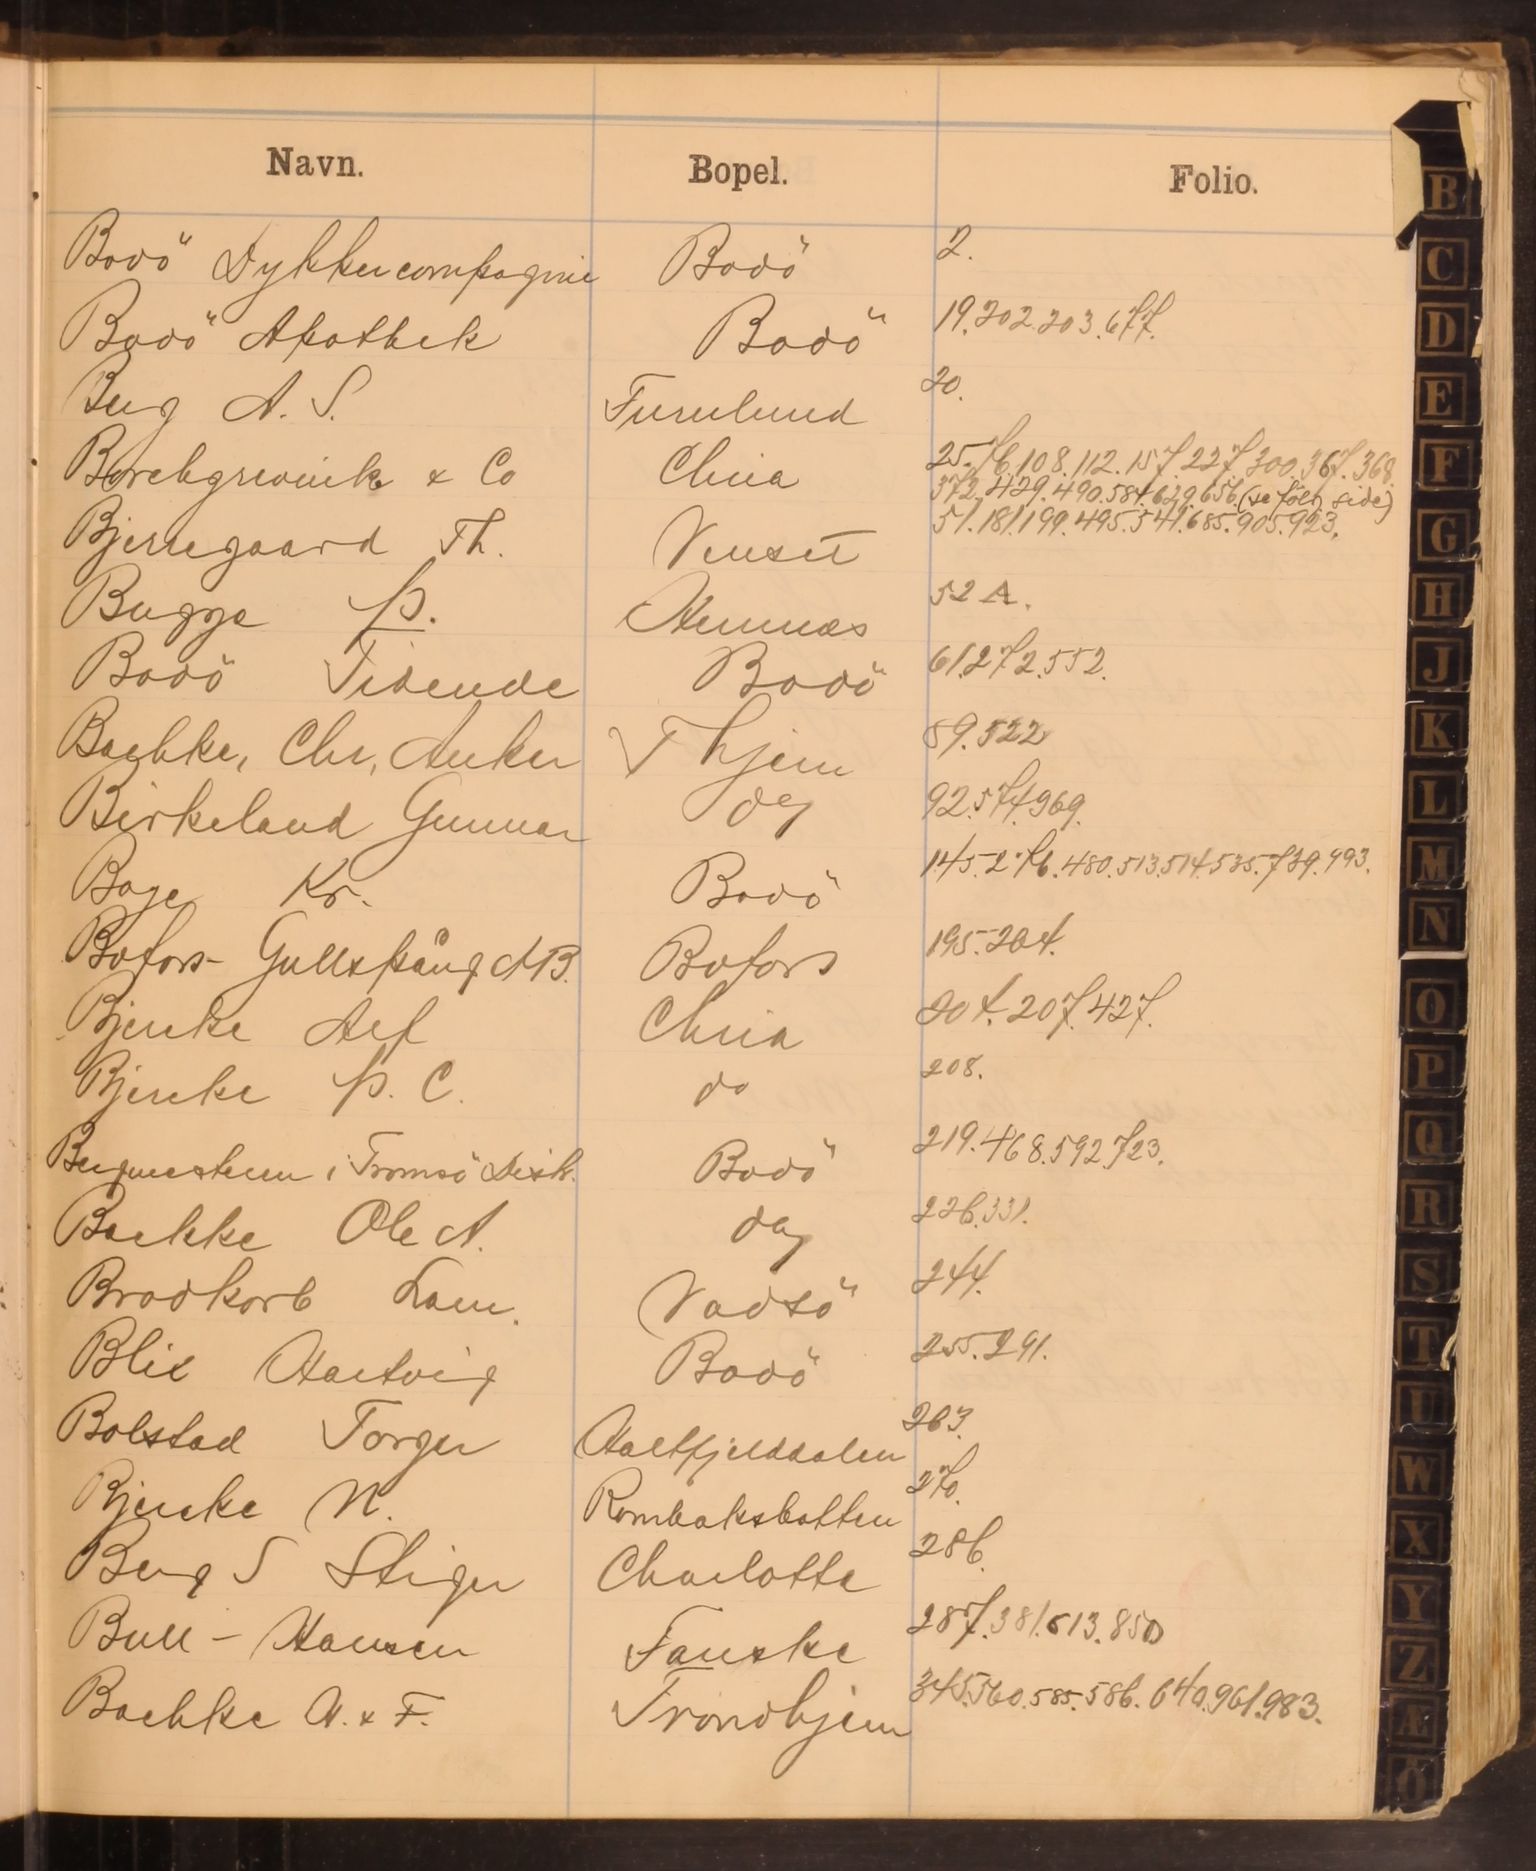 Navn. Bopel. Folio.
Bodö Dykkercompagnie Bodö 2.
Bodö Apothek Bodö 19.202.203.677.
Berg A. S. Furulund 20.
Borchgrevink & Co Chria 25.76.108.112.157.227.300.367.368.
372.429.490.584.629.656.(se följ. side)
Bjerregaard Th. Venset 51.181.199.495.541.685.905.923.
Bugge P. Hemnæs 52 A.
Bodö Tidende Bodö 61.272.552.
Bachke, Chr, Anker Thjem 89.522
Birkeland Gunnar do 92.574.969.
Boye Kr. Bodö 145.276.480.513.514.535.739.993.
Bofors-Gullspång AB. Bofors 195.204.
Bjercke Alf Chria 204.207.427.
Bjercke P. C. do 208.
Bergmesteren i Tromsö Distr. Bodö 219.468.592.723.
Backke Ole A. do 226.331.
Brodkorb Lam. Vadsö 244.
Blix Hartvig Bodö 255.291.
Bolstad Torger Hatfjelddalen 263.
Bjercke N. Rombaksbotten 270.
Berg S Stiger Charlotta 286.
Bull-Hansen Fauske 287.381.613.850
Bachke A. & F. Trondhjem 345.560.585.586.640.961.983.
B
C
D
E
F
G
H
J
K
L
M
N
O
P
Q
R
S
T
U
W
X
Y
Z
Æ
Ö